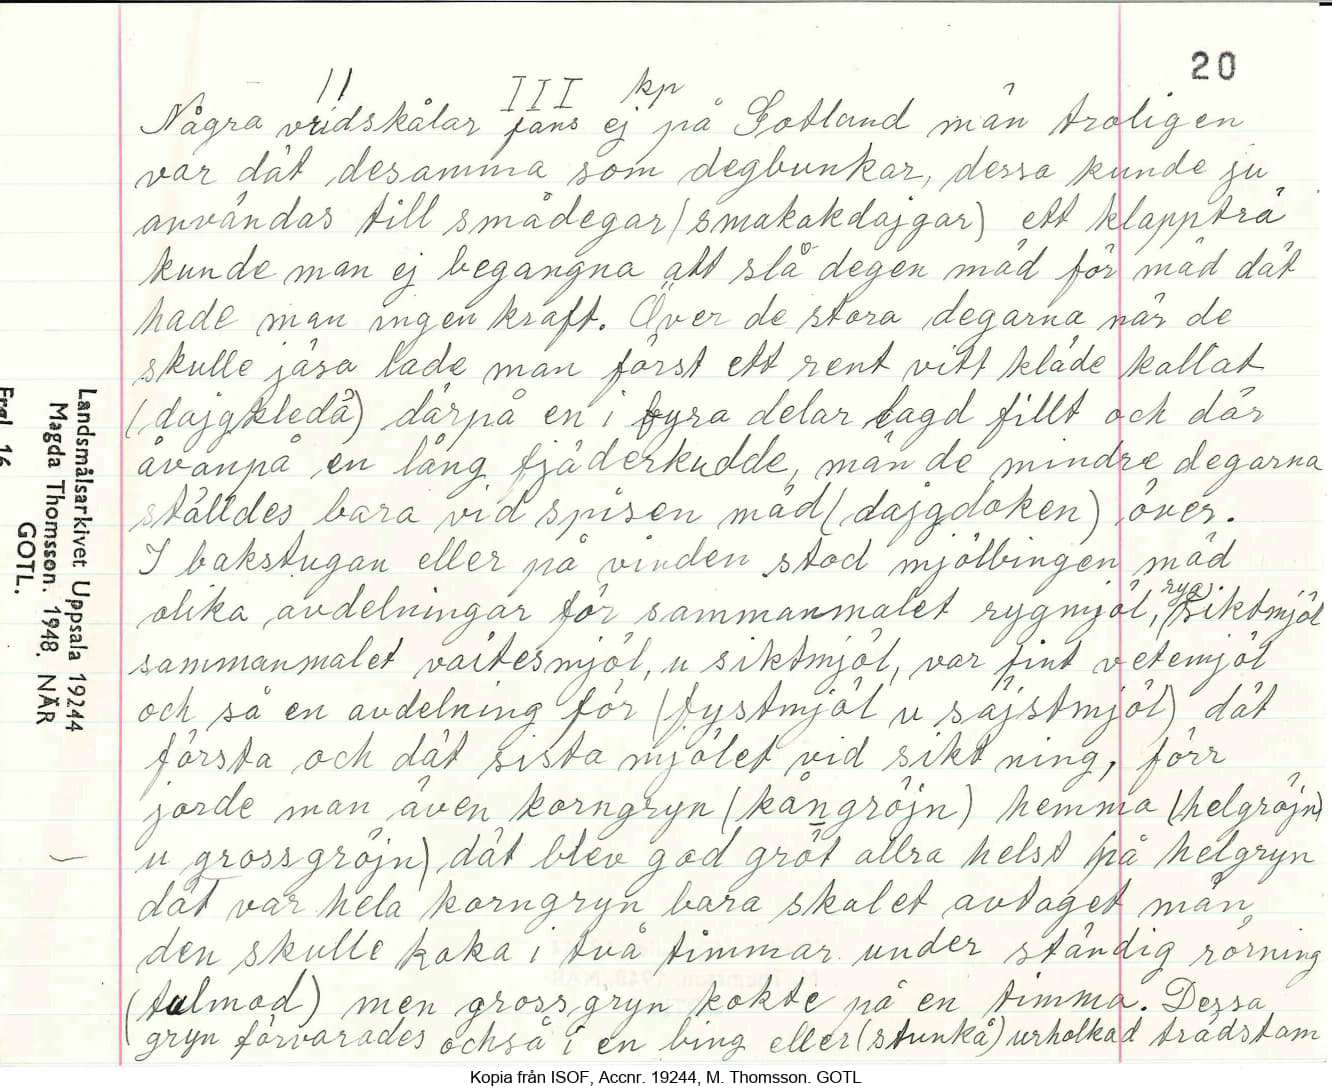 20
11 III kp
Några vridskålar fans ej på Gotland män troligen
var dät desamma som degbunkar, dessa kunde ju
användas till smådegar (smakakdajgar) ett klappträ
kunde man ej begangna att slå degen mäd för mäd dät
hade man ingen kraft. Över de stora degarna när de
skulle jäsa lade man först ett rent vitt kläde kallat
(dajgkledä) därpå en i fyra delar lagd fillt och där
åvanpå en lång fjäderkudde, män de mindre degarna
ställdes bara vid spisen mäd (dajgdoken) över.
I bakstugan eller på vinden stod mjölbingen mäd
olika avdelningar för sammanmalet rygmjöl, (ryg) siktmjöl
sammanmalet vaitesmjöl, u siktmjöl, var fint vetemjöl
och så en avdelning för (fystmjöl u säjstmjöl) dät
första och dät sista mjölet vid siktning, förr
jorde man även korngryn (kångröjn) hemma (helgröjn)
u grossgröjn) dät blev god gröt allra helst på helgryn
dät var hela korngryn bara skalet avtaget män
den skulle koka i två timmar under ständig rörning
(tulmod) men grossgryn kokte på en timma. Dessa
gryn förvarades också i en bing eller (stunkå) urholkad trädstam
Landsmålsarkivet Uppsala 19244
Magda Thomsson. 1948. NÄR
GOTL.
Frgl. 16
Kopia från ISOF, Accnr. 19244, M. Thomsson. GOTL